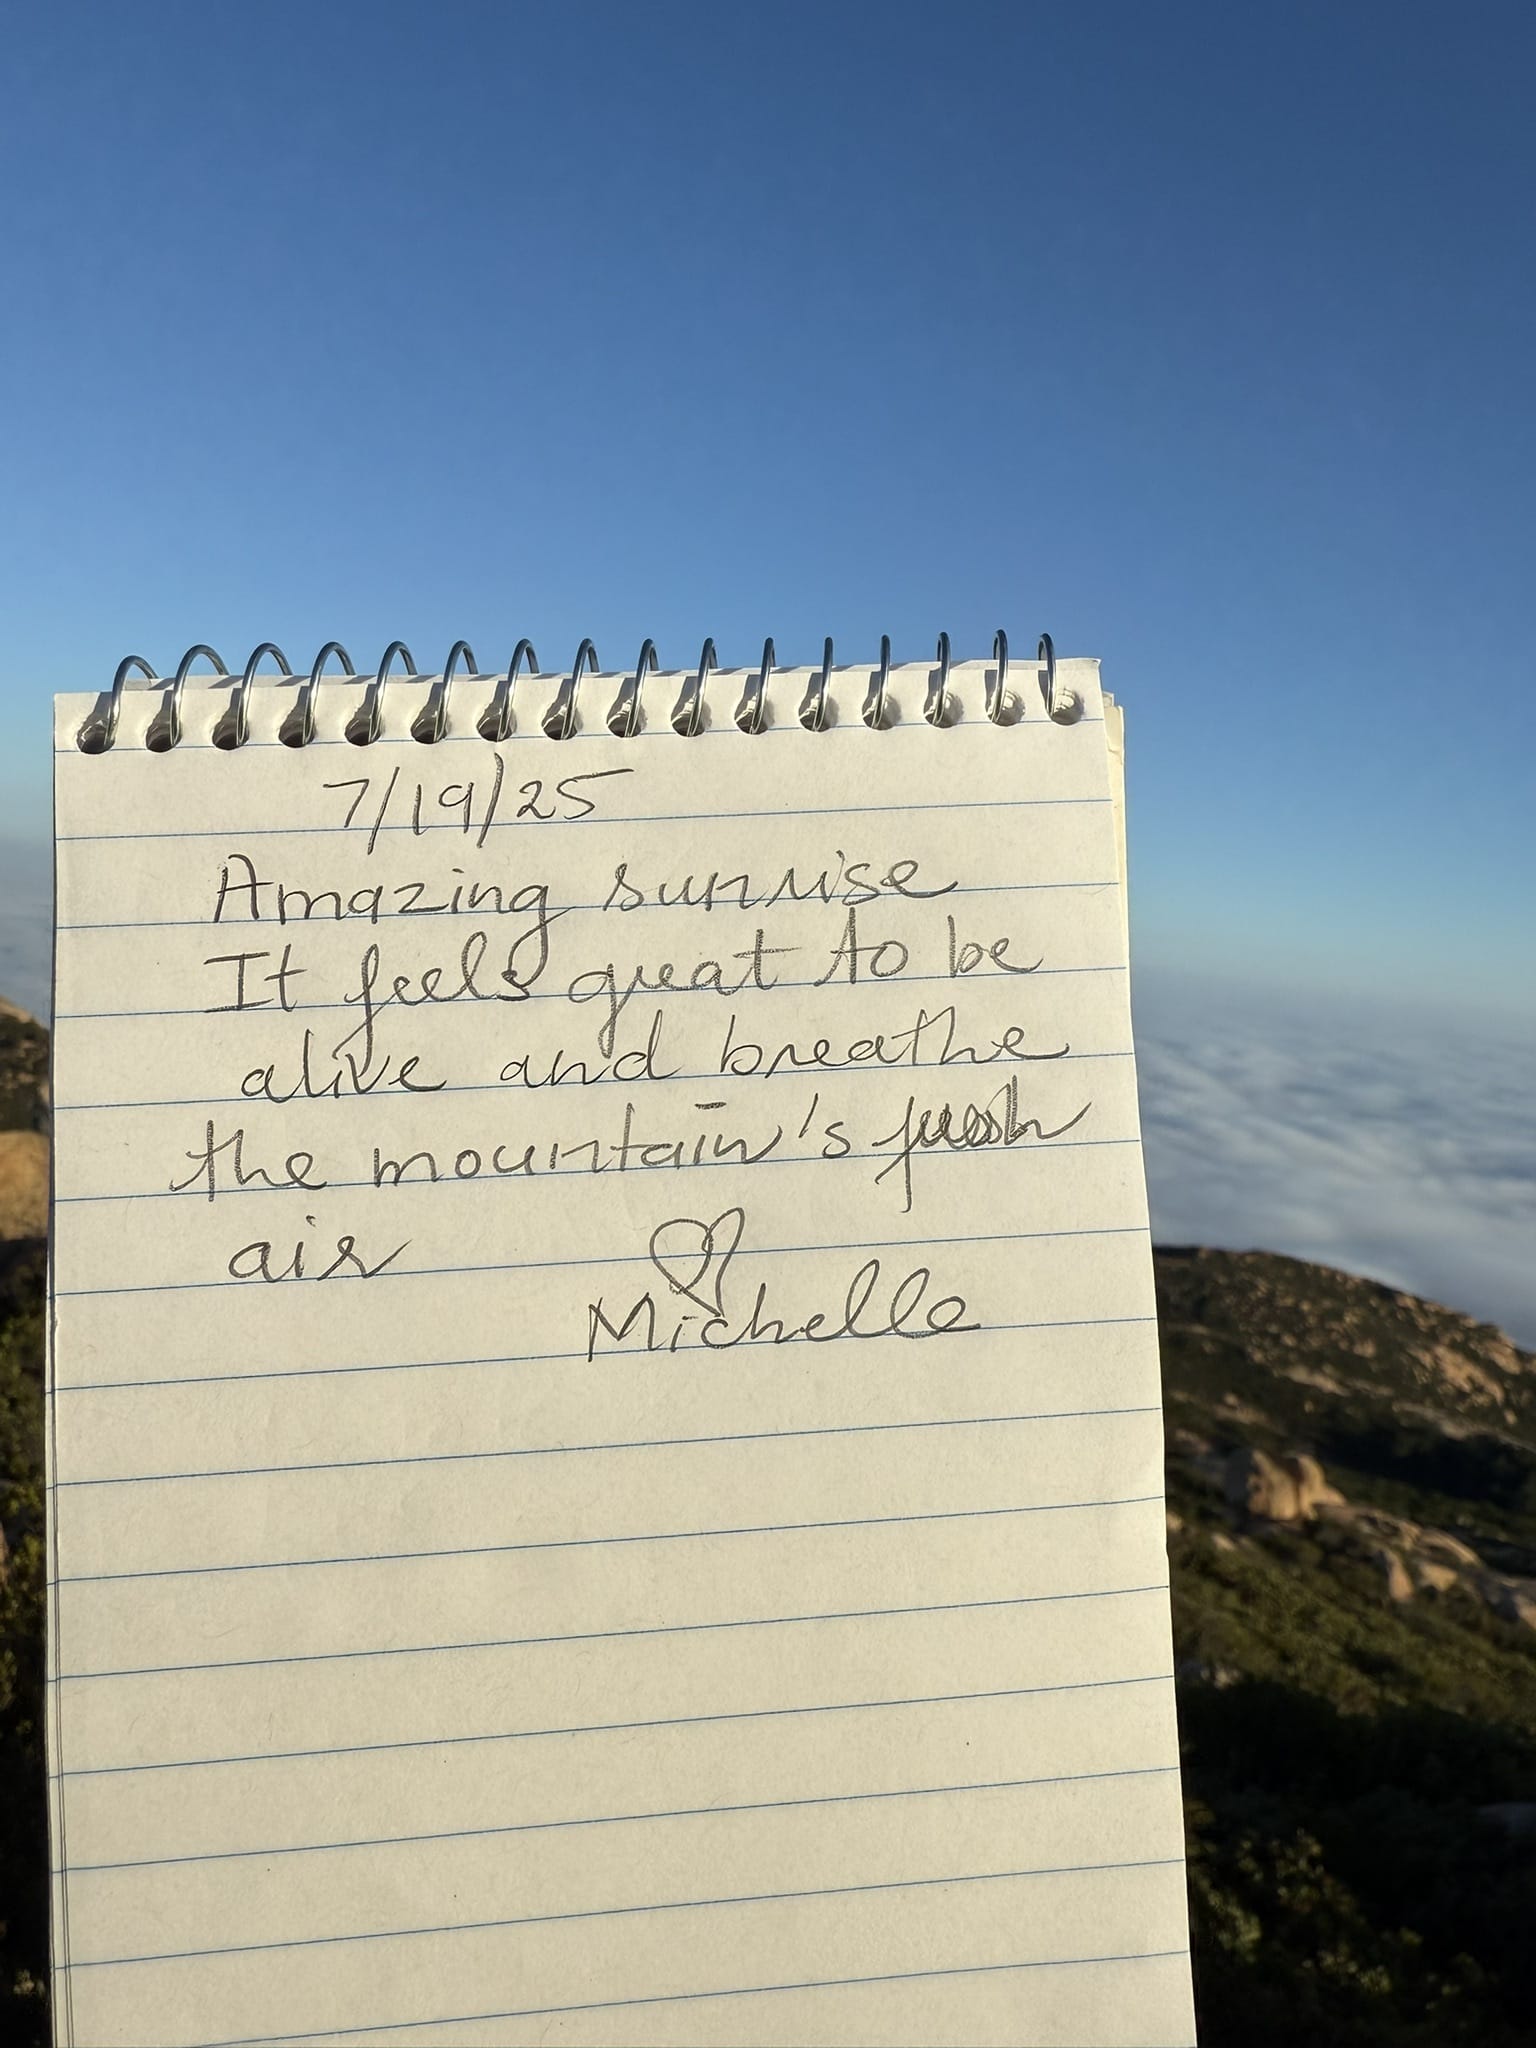 7/19/25
Amazing sunrise
It feels great to be
alive and breathe
the mountain's fresh
air
Michelle